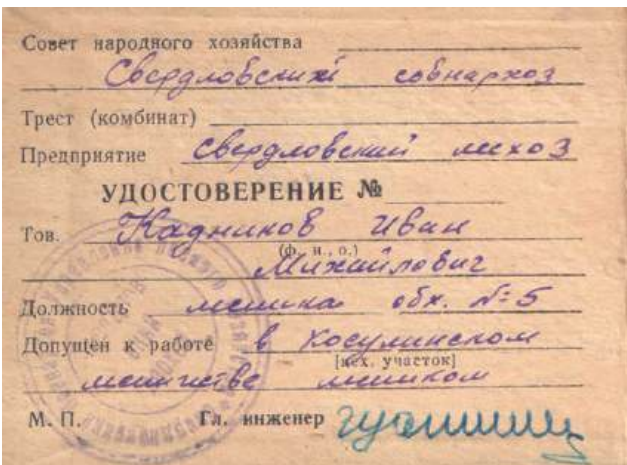 Совет народного хозяйства
Свердловский совнархоз
Трест (комбинат)
Предприятие Свердловский лесхоз
УДОСТОВЕРЕНИЕ №
Тов. Кадников Иван
(ф. и., о.)
Михайлович
Должность лесника обх. №5
Допущен к работе в Косулинском
[цех, участок]
лесничестве лесником
М. П. Гл. инженер